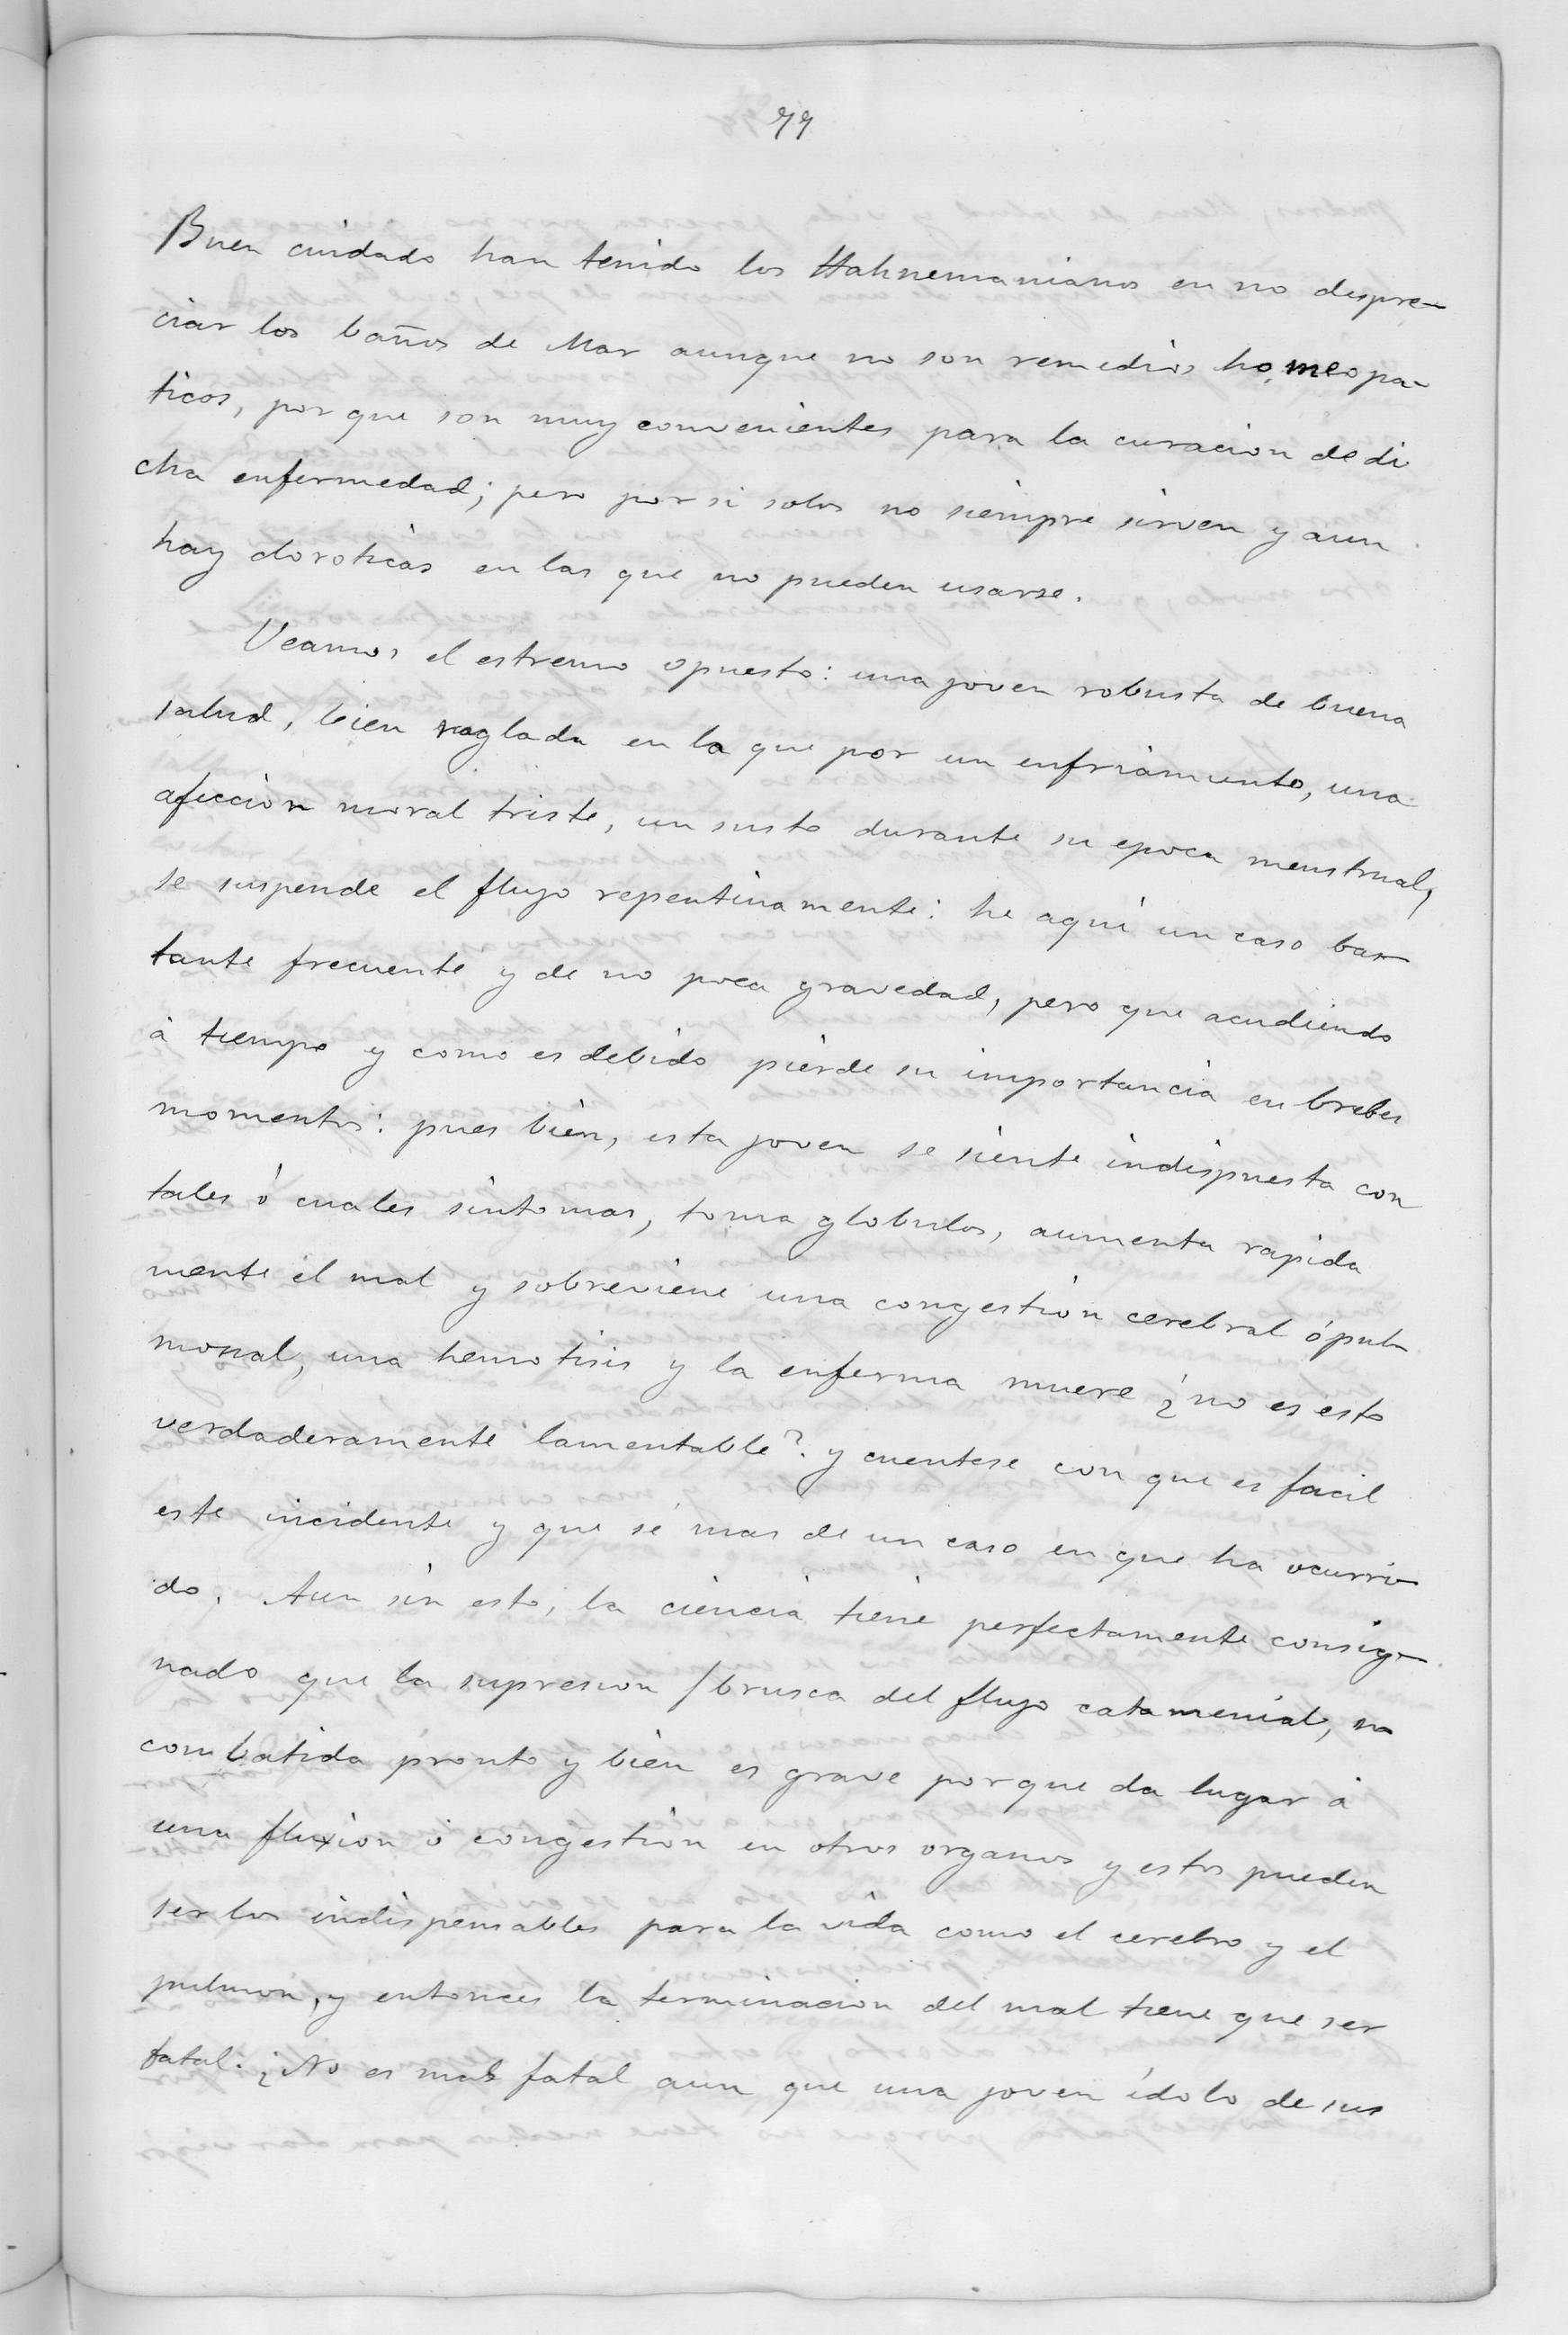 77
Buen cuidado han tenido los Hahnemanianos en no despre-
ciar los baños de Mar aunque no son remedios homeopa-
ticos, por que son muy convenientes para la curacion de di
cha enfermedad; pero por si solos no siempre sirven y aun
hay cloroticas en las que no pueden usarse.
Veamos el estremo opuesto: una joven robusta de buena
salud, bien reglada en la que por un enfriamiento, una
afeccion moral triste, un susto durante su epoca menstrual,
se suspende el flujo repentinamente: he aqui un caso bas-
tante frecuente y de no poca gravedad, pero que acudiendo
á tiempo y como es debido pierde su importancia en brebes
momentos: pues bien, esta joven se siente indispuesta con
tales ó cuales sintomas, toma globulos, aumenta rapida
mente el mal y sobreviene una congestion cerebral ó pul-
monal, una hemotisis y la enferma muere ¿no es esto
verdaderamente lamentable? y cuentese con que es facil
este incidente y que sé mas de un caso en que ha ocurri-
do. Aun sin esto, la ciencia tiene perfectamente consig-
nado que la supresion brusca del flujo catamenial, no
combatida pronto y bien es grave porque da lugar á
una fluxion ó congestion en otros organos y estos pueden
ser los indispensables para la vida como el cerebro y el
pulmon, y entonces la terminacion del mal tiene que ser
fatal. ¿No es mas fatal aun que una joven ídolo de sus